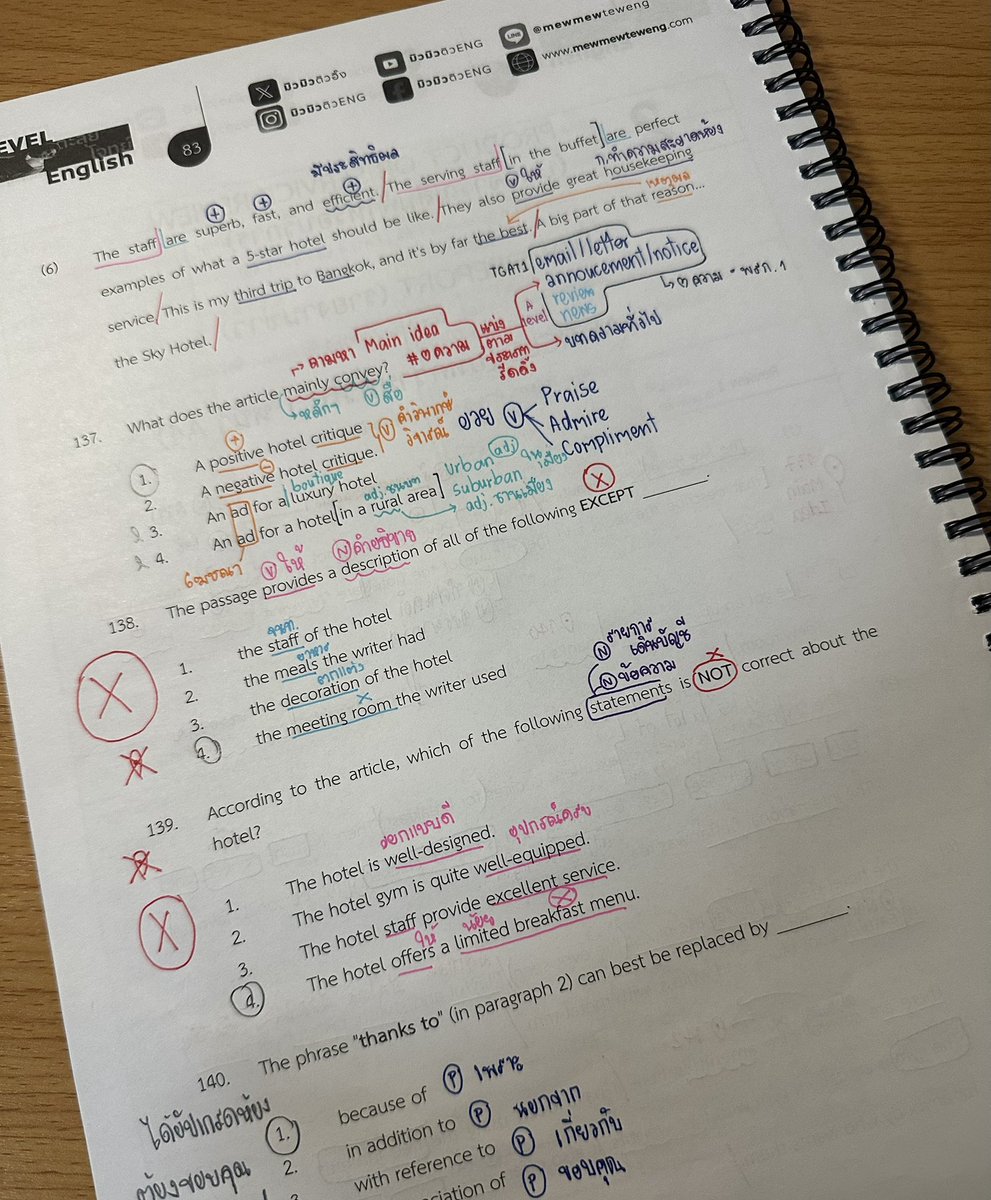 EVEL
English
83
มิวมิวติวอิ้ง
มิวมิวติวENG
@mewmewteweng
มิวมิวติวENG
มิวมิวติวENG
www.mewmewteweng.com
มีประสิทธิผล
ก.ทำความสะอาดห้อง
(6) The staff are superb, fast, and efficient. The serving staff in the buffet are perfect
V ให้
examples of what a 5-star hotel should be like. They also provide great housekeeping
เหตุผล
service. This is my third trip to Bangkok, and it's by far the best. A big part of that reason...
the Sky Hotel.
TGAT1 email/letter
annoucement/notice
A level
review
news
บทความทั่วไป
ถามหา Main idea
แบ่งตามประเภท
137. What does the article mainly convey?
หลักๆ V สื่อ
1. A positive hotel critique
V คำวิพากษ์วิจารณ์
อวย V
Praise
Admire
Compliment
2. A negative hotel critique.
boutique
3. An ad for a luxury hotel
urban adj ในเมือง
adj.ชนบท
4. An ad for a hotel in a rural area
suburban adj. ชานเมือง
โฆษณา V ให้ N คำอธิบาย
138. The passage provides a description of all of the following EXCEPT ______.
X
จนท.
1. the staff of the hotel
อาหาร
2. the meals the writer had
ตกแต่ง
3. the decoration of the hotel
X
4. the meeting room the writer used
N รายการเดินบัญชี
N ข้อความ
139. According to the article, which of the following statements is NOT correct about the
hotel?
ออกแบบดี
1. The hotel is well-designed.
อุปกรณ์ครบ
2. The hotel gym is quite well-equipped.
3. The hotel staff provide excellent service.
ให้ น้อย X
4. The hotel offers a limited breakfast menu.
140. The phrase "thanks to" (in paragraph 2) can best be replaced by ______.
ได้อัปเกรดห้อง
1. because of P เพราะ
ต้องขอบคุณ
2. in addition to P นอกจาก
3. with reference to P เกี่ยวกับ
ciation of P ขอบคุณ